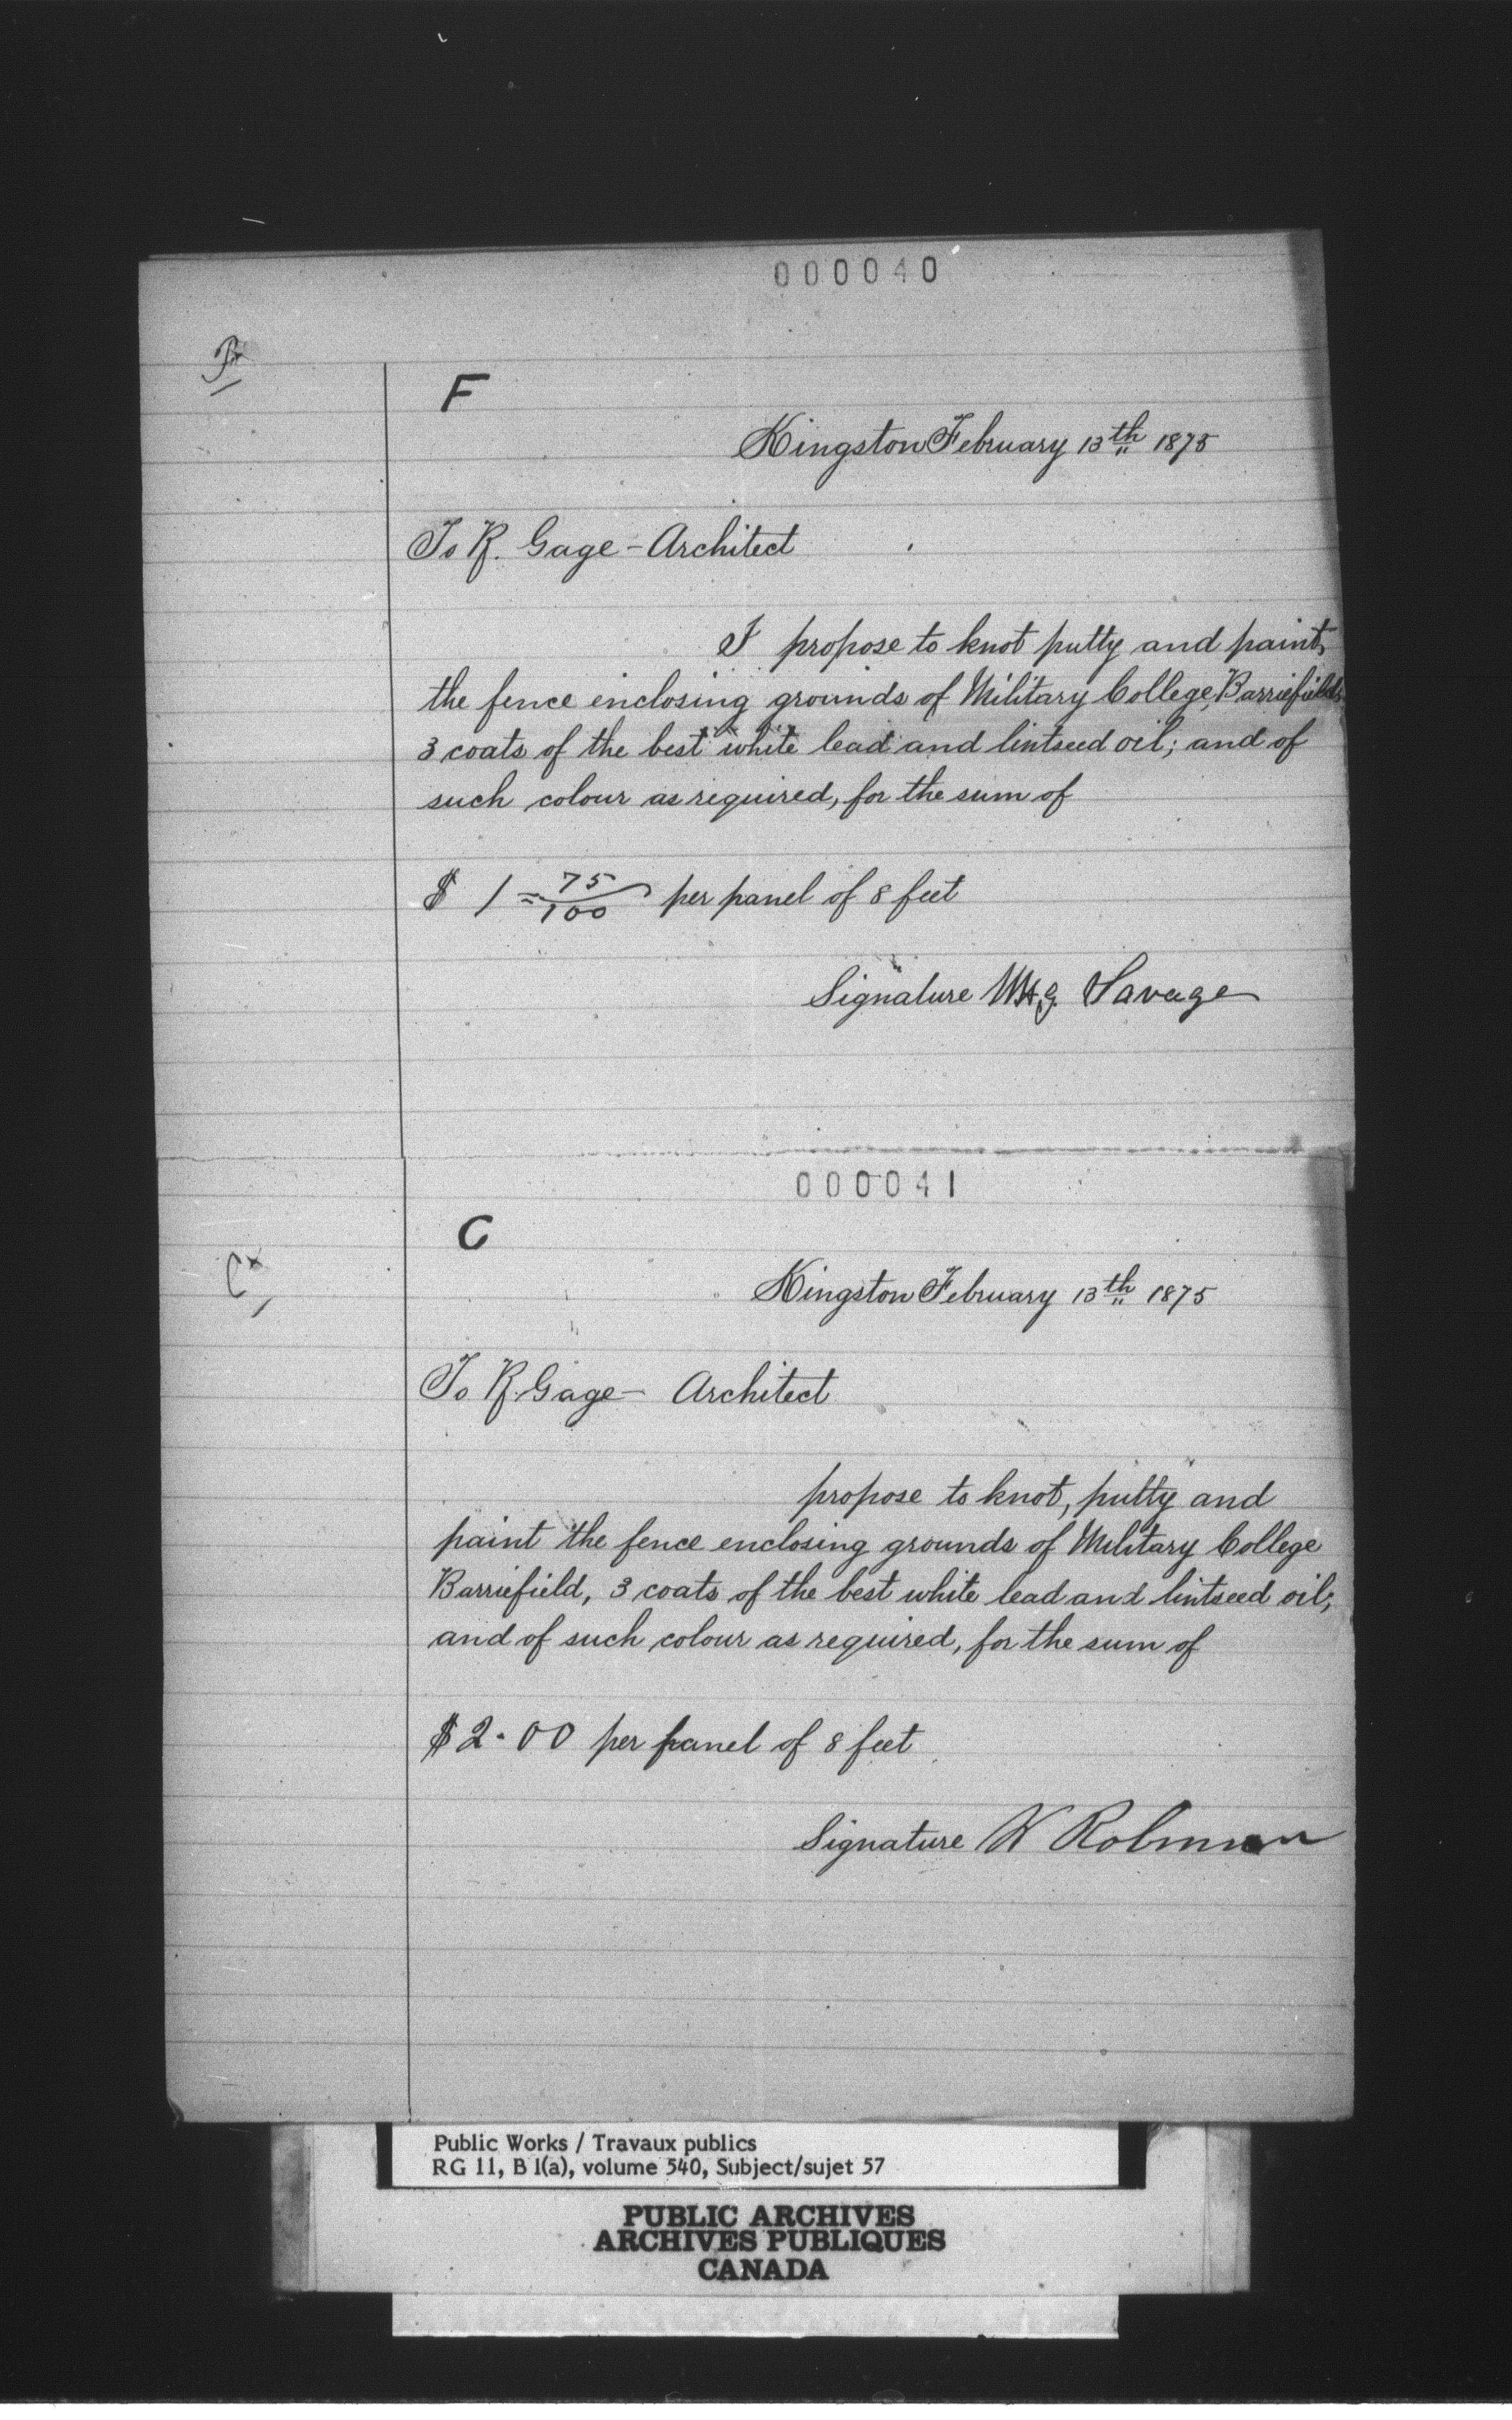 000040
F
F
Kingston February 13th 1875
To R. Gage - Architect
I propose to knot putty and paint,
the fence enclosing grounds of Military College, Barriefield,
3 coats of the best white lead and lintseed oil; and of
such colour as required, for the sum of
$ 1 = 75/100 per panel of 8 feet
Signature Savage
000041
C
Cx
Kingston February 13th 1875
To R. Gage - Architect
propose to knot, putty and
paint the fence enclosing grounds of Military College
Barriefield, 3 coats of the best white lead and lintseed oil;
and of such colour as required, for the sum of
$2.00 per panel of 8 feet
Signature W Robinson
Public Works / Travaux publics
RG 11, B 1(a), volume 540, Subject/sujet 57
PUBLIC ARCHIVES
ARCHIVES PUBLIQUES
CANADA